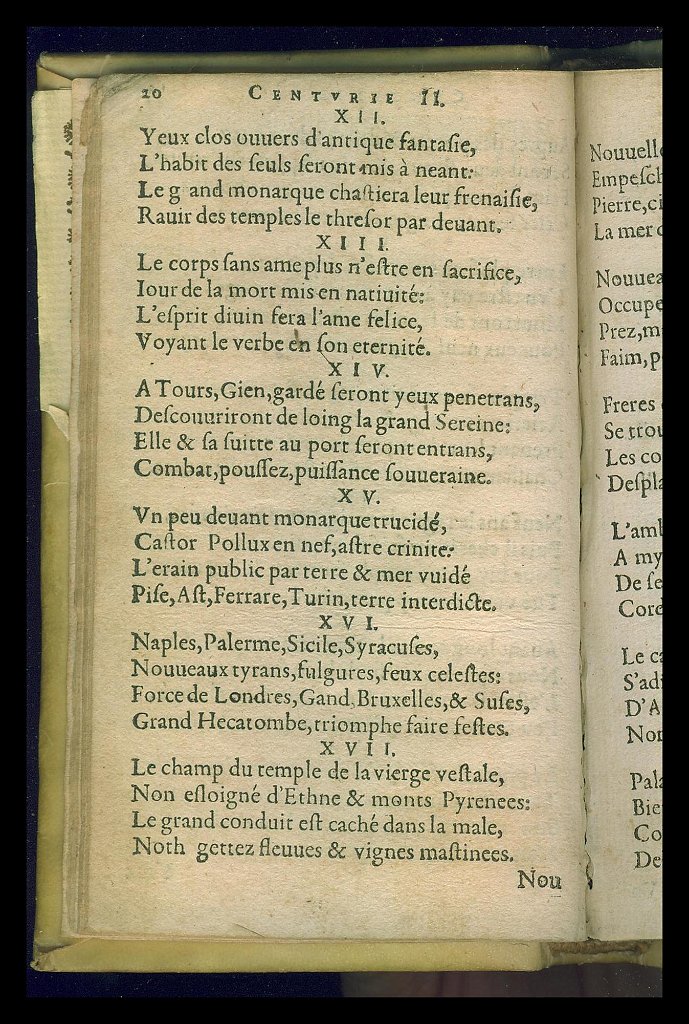 20 CENTVRIE II.
XII.
Yeux clos ouuers d'antique fantaſie,
L'habit des ſeuls ſeront mis à neant:
Le g and monarque chaſtiera leur frenaiſie,
Rauir des temples le threſor par deuant.
XIII.
Le corps ſans ame plus n'eſtre en ſacrifice,
Iour de la mort mis en natiuité:
L'eſprit diuin fera l'ame felice,
Voyant le verbe en ſon eternité.
XIV.
A Tours, Gien, gardé ſeront yeux penetrans,
Deſcouuriront de loing la grand Sereine:
Elle & ſa ſuitte au port ſeront entrans,
Combat, pouſſez, puiſſance ſouueraine.
XV.
Vn peu deuant monarque trucidé,
Caſtor Pollux en nef, aſtre crinite:
L'erain public par terre & mer vuidé
Piſe, Aſt, Ferrare, Turin, terre interdicte.
XVI.
Naples, Palerme, Sicile, Syracuſes,
Nouueaux tyrans, fulgures, feux celeſtes:
Force de Londres, Gand, Bruxelles, & Suſes,
Grand Hecatombe, triomphe faire feſtes.
XVII.
Le champ du temple de la vierge veſtale,
Non eſloigné d'Ethne & monts Pyrenees:
Le grand conduit eſt caché dans la male,
Noth gettez fleuues & vignes maſtinees.
Nou
Nouuell
Empeſch
Pierre, ci
La mer
Nouuea
Occupe
Prez, m
Faim, p
Freres
Se trou
Les co
Deſpla
L'amb
A my
De ſe
Cord
Le ca
S'adi
D'A
Non
Pala
Bie
Co
De